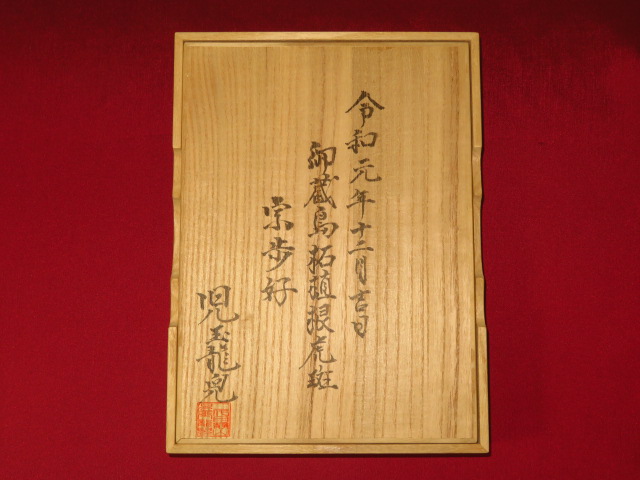 令和元年十二月吉日
御蔵島拓植根虎斑
宗歩好
児玉龍兜